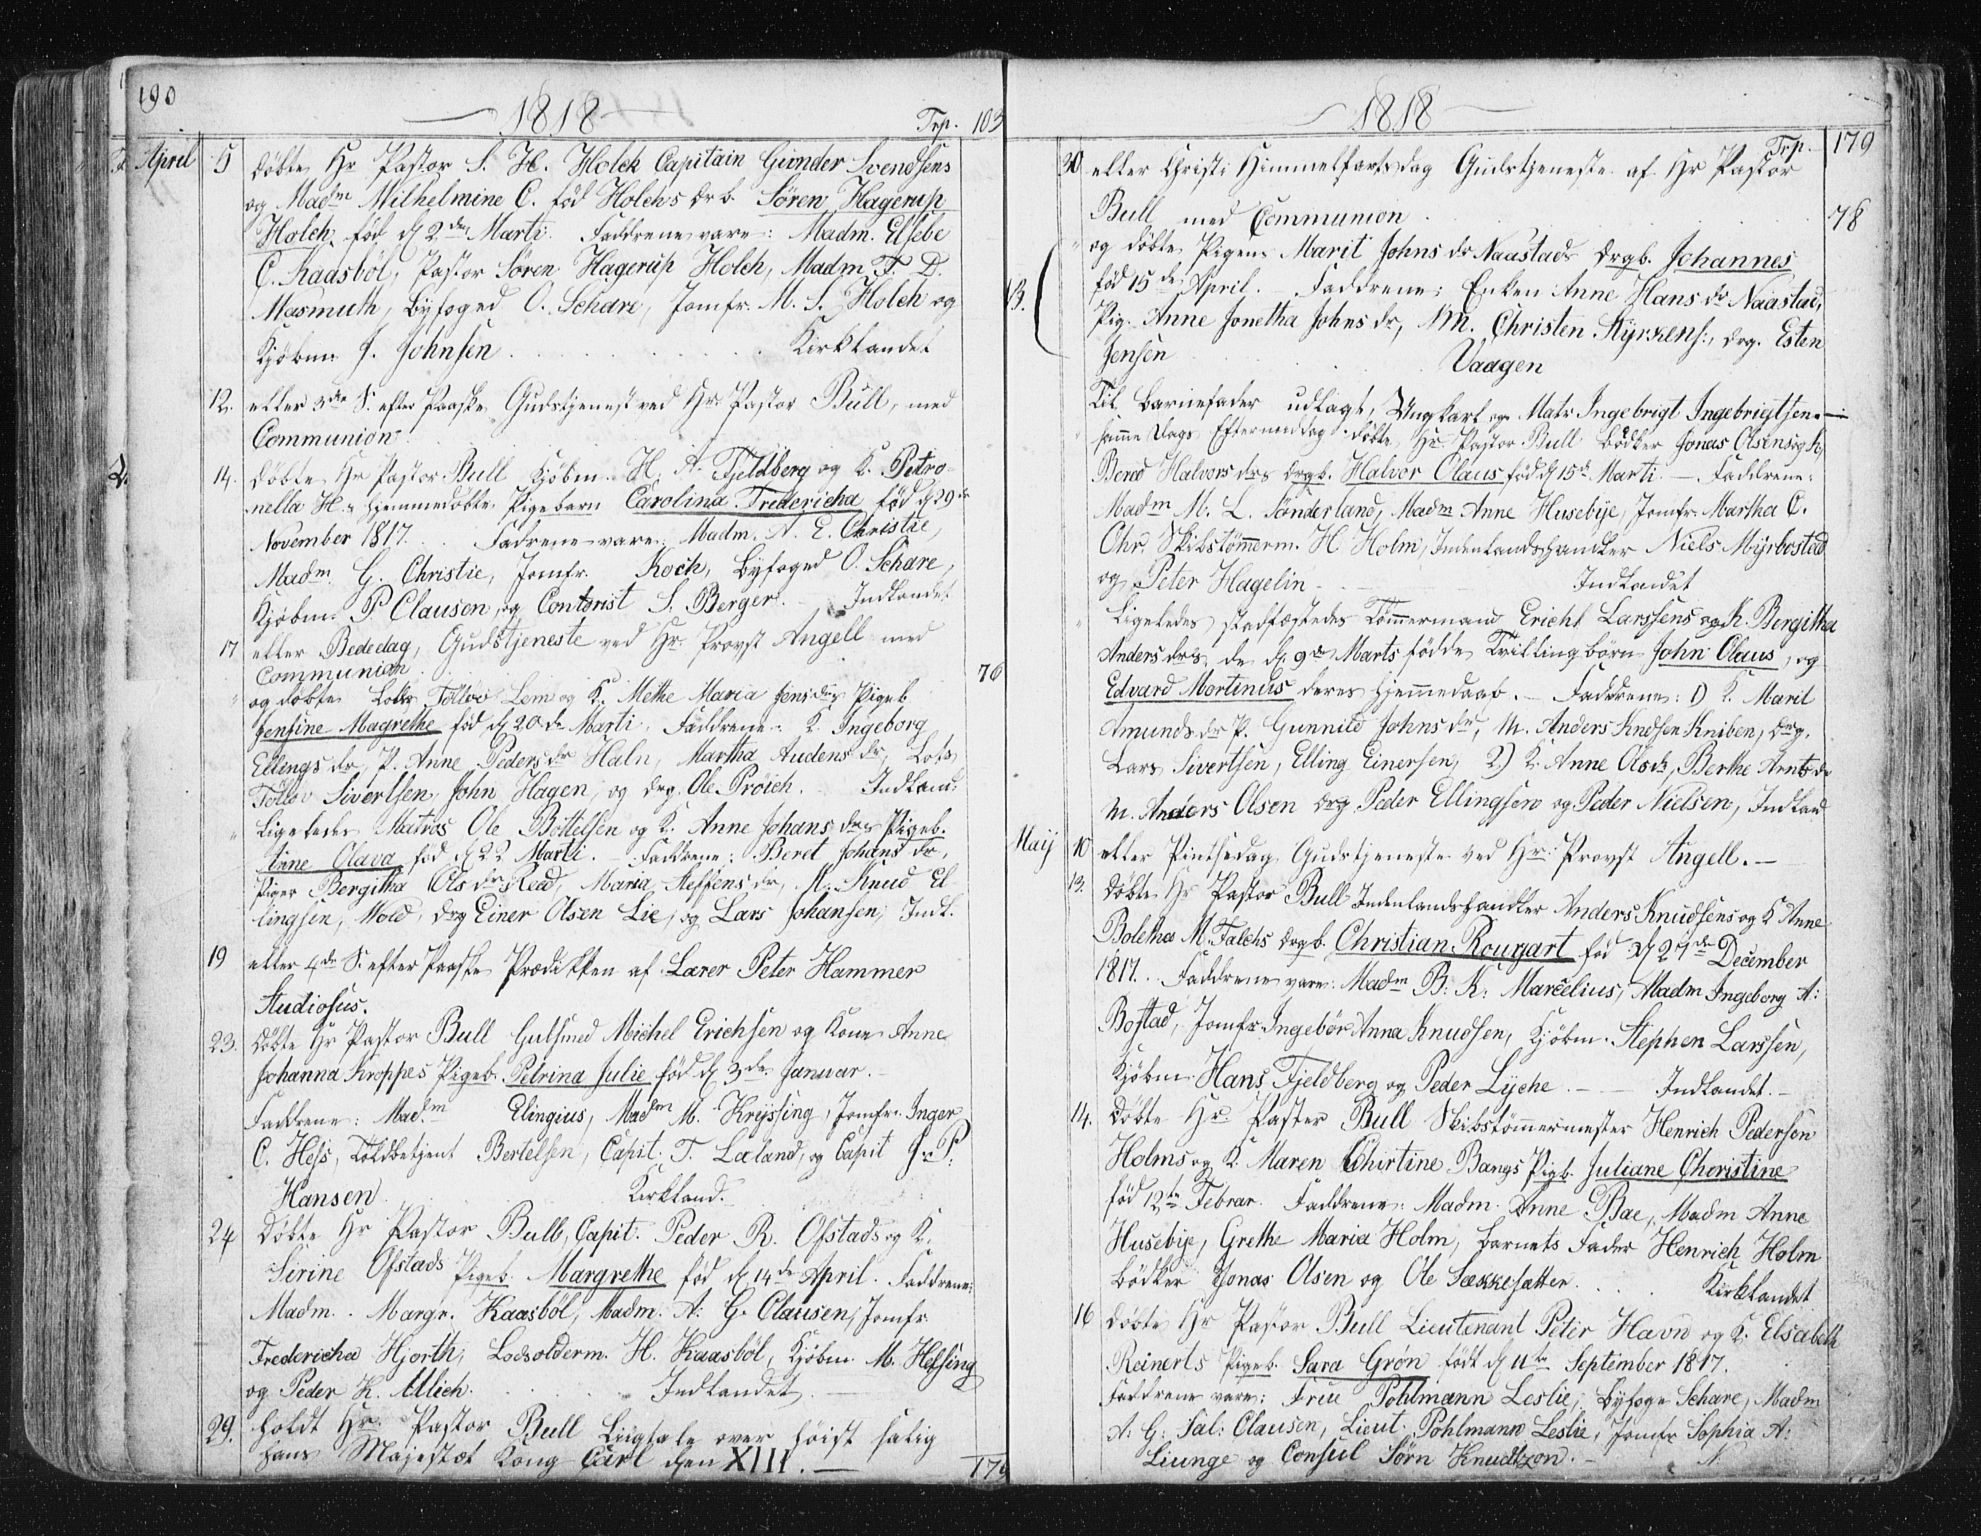 190
1818
Trp. 103
April 5 døbte Hr Pastor S. H. Holck Capitain Günder Svendsens
og Madm Wilhelmine C. fød Holchs drb. Søren Hagerup
Holch, fød d 2den Marti. Faddrene vare: Madm. Elsebe
C. Kaasböl, Pastor Søren Hagerup Holch, Madm F. D.
Masmuth, byfoged O. Schare, Jomfr. M. S. Holch og
Kjöbm J. Johnsen Kirklandet
12. eller 3die S. efter Paaske Gudstjenest ved Hr. Pastor Bull, med
Communion
14. døbte Hr Pastor Bull Kjøbm. H. A. Fjeldberg og K. Petro-
nella H.s hjemmedøbte Pigebarn Carolina Fredericha fød d 29de
November 1817. Fadrene vare: Madm. A. E. Christie,
Madm. G. Christie, Jomfr. Koch, byfoged O. Schare,
Kjøbm. P Clauson og Contorist S. Berger. Indlandet
17 eller Bededag, Gudstjeneste ved Hr. Provst Angell med
Communion 76
og døbte Lods Tolløv Lem og K. Methe Maria Jensdrs Pigeb
Jensine Magrethe fød d 20de Marti. Faddrene: K. Ingeborg
Ellings dr, P. Anne Peders dr Haln, Martha Audens dr, Lods
Tolløv Sivertsen, John Hagen, og drg. Ole Pröich. Indland:
Ligeledes Matros Ole Böttelsen og K. Anne Johans drs Pigeb.
Anne Olava fød d 22 Marti. Faddrene: Beret Johans dr,
Piger Bergitha Ols dr Read, Maria Steffens dr, M. Knud El-
lingsen, Wold, drg Einer Olsen Lie, og Lars Johansen, Indl.
19 eller 4de S. efter Paaske Prædikken af Lærer Peter Hammer
Studiosus.
23. døbte Hr Pastor Bull Gulsmed Michel Erichsen og Kone Anne
Johanna Kroppes Pigeb. Petrina Julie fød d 3de Januar.
Faddrene: Madm Elingius, Madm M. Kreyssing, Jomfr. Inger
C. Hess, Toldbetjent Bertelsen, Capit. T. Lœland, og Capit J. P.
Hansen Kirkland.
24 døbte Hr Pastor Bull, Capit. Peder R. Ofstads og K.
Sirine Ofstads Pigeb. Margrethe fød d 14de April. Faddrene:
Madm. Margr. Kaasböl, Madm. A: G. Clausen, Jomfr
Fredericha Hjorth, Lodsolderm. H. Kaasböl, Kjöbm. M. Helsing
og Peder K. Ulich. Indlandet.
29. holdt Hr Pastor Bull Liigtale over høist salig
hans Majestæt Kong Carl den XIII.
1818
Trp. 179
30 eller Christi Himmelfartsdag Gudstjeneste af Hr Pastor
Bull med Communion 78
og døbte Pigens Marit Johns dr Naastads drgb. Johannes
fød 15de April. Faddrene: Enken Anne Hans dr Naastad,
Pig. Anne Jonetha Johns dr, M. Christen Styrkens:, drg. Esten
Jensen Vaagen
Til Barnefader udlagt, Ungkarl og Matr Ingebrigt Ingebrigtsen.
samme Dags Eftermiddag døbte Hr. Pastor Bull bødker Jonas Olsens og K,
Bered Halvors drs drgb. Halvor Olaus fød d 15de Marti. Faddrene:
Madm M. L. Sönderland, Madm Anne Husebye, Jomfr. Martha C.
Chr. Skibstømmerm. H Holm, Indenlandshandler Niels Myrbostad
og Peter Hagelin Indlandet
Ligeledes stadfæstedes Tømmermand Ericht Larssens og K. Bergitha
Anders drs de d 9de Marts fødde Tvillingbørn John Olaus, og
Edvard Mortinus deres hjemmedaab. Faddrene: 1) K. Marit
Amunds dr P. Gunnild Johns dr, M. Anders Kndsen Kniben, drg.
Lars Sivertsen, Elling Einersen, 2.) K. Anne Olsdr, Berthe Arnts dr
M. Anders Olsen drg Peder Ellingsen og Peder Nielsen, Indland
Maij 10 eller Pintsedag Gudstjeneste ved Hr: Provst Angell.
13. døbte Hr Pastor Bull Indenlandshandler Anders Knudsens og K Anne
Boletha M. Falchs drgb. Christian Rougart fød d 27de December
1817. Faddrene vare: Madm B: K: Marcelius, Madm Ingeborg A:
Bostad, Jomfr Ingebör Anna Knudsen, Kjöbm. Stephen Larssen,
Kjöbm Hans Fjeldberg og Peder Lyche. Indlandet.
14. døbte Hr Paster Bull Skibstømmermester Henrich Pedersen
Holms og K. Maren Chirtine Bangs Pigb. Juliane Choristine
fød 12te Febrar Faddrene: Madm. Anne Bae, Madm Anne
Husebye, Grethe Maria Holm, barnets Fader Henrich Holm
bødker Jonas Olsen og Ole Sækkesætter Kirklandet
16 døbte Hr Pastor Bull Lieutenant Peter Havn og K. Elsabeth
Reinerts Pigeb. Sara Grøn født d 11te September 1817.
Faddrene vare: Frue Pohlmann Leslie, byfoge Schare, Madm
A: G: Sal: Clausen, Lieut. Pohlmann Leslie, Jomfr Sophia A:
Liunge og Consul Sörn Knudtzon. N.